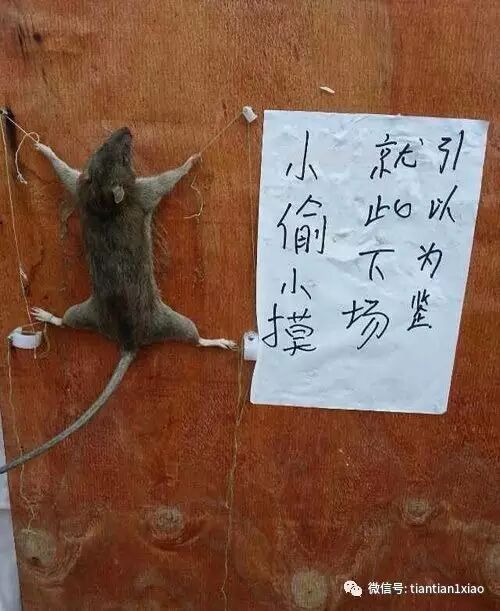 小偷小摸
就此下场
引以为鉴
微信号: tiantian1xiao